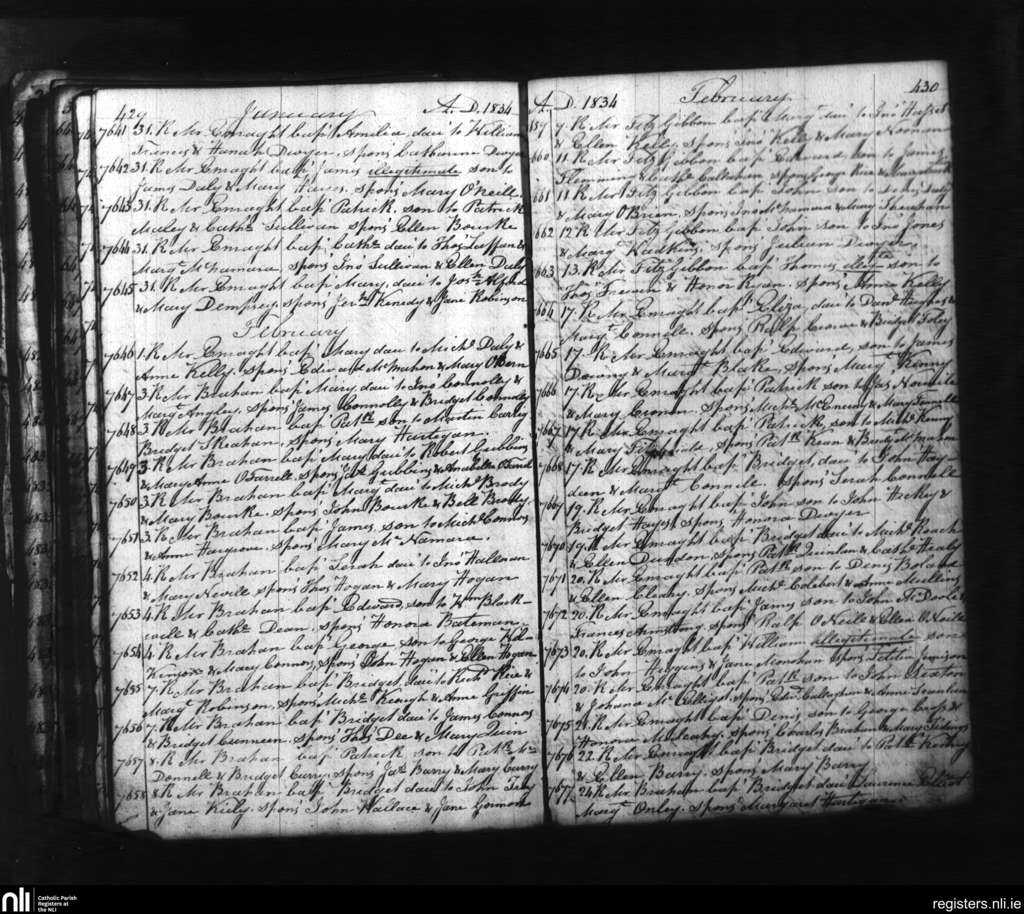 429 January A.D. 1834
7641 31. R Mr Enraght bapd Amelia, daur to William
Francis & Hanah Dwyer, Spons Catharine Dwyer
7642 31. R Mr Enraght bapd James illegitimate son to
James Daly & Mary Hains. Spons Mary O'Neill
7643 31. R Mr Enraght bapd Patrick son to Patrick
Maley & Cathe Sullivan Spons Ellen Bourke
7644 31. R Mr Enraght bapd Cathe daur to Thos Luffan &
Margt McNamara, Spons Jno Sullivan & Ellen Daly
7645 31. R Mr Enraght bapd Mary, daur to Jos
& Mary Dempsey, Spons Jerh Kenedy & Jane Robinson
February
7646 1. R Mr Enraght bapd Mary daur to Michl Daly &
Anne Kelly. Spons Edward McMahon & Mary O'Bern
7647 3. R Mr Brahan bapd Mary, daur to Jno Connolly &
Margt Angley, Spons James Connolly & Bridget Connolly
7648 3. R Mr Brahan bapd Patk son to Martin Carey
Bridget Skahan, Spons Mary Hartigan
7649 3. R Mr Brahan bapd Mary, daur to Robert Gubbins
& Mary Anne O'Farrell. Spons Gubbins & Anabella O'Farrell
7650 3. R Mr Brahan bapd Margt daur to Michl Brody
& Mary Bourke. Spons John Bourke & Bell Brody
7651 3. R Mr Brahan bapd James, son to Michl Connors
& Anne Hargrove. Spons Mary McNamara.
7652 4. R Mr Brahan bapd Sarah daur to Jno Hallinan
& Mary Neville Spons Thos Hogan & Mary Hogan
7653 4. R Mr Brahan bapd Edward, son to Wm Black-
well & Cathe Dean. Spons Honora Bateman
7654 4. R Mr Brahan bapd George son to George Wil-
kinson & Mary Connor, Spons John Hogan & Ellen Hogan
7655 7. R Mr Brahan bapd Bridget, daur to Richd Rice &
Margt Robinson, Spons Michl Keough & Anne Griffin
7656 7. R Mr Brahan bapd Bridget daur to James Connors
& Bridget Cunneen. Spons Thos Dee & Mary Quin
7657 8. R Mr Brahan bapd Patrick son to Patk Mc
Donnell & Bridget Curry, Spons Jas Barry & Mary Curry
7658 8. R Mr Brahan bapd Bridget daur to John
& Jane Kiely Spons John Wallace & Jane Gorman
A.D. 1834 February 430
7. R Mr Fitz Gibbon bapd Mary daur to Jno
& Ellen Kelly. Spons Jno Kelly & Mary Noonan
660 11. R Mr Fitz Gibbon bapd Edward, son to James
Flemming & Callaghan Spons George Rice &
661 11. R Mr Fitz Gibbon bapd John son to Daly
& Mary O'Brien. Spons Jno McNamara & Mary
662 12. R Mr Fitz Gibbon bapd John son to Jno Jones
& Margt Wadkins, Spons Julian Dwyer
663 13. R Mr Fitz Gibbon bapd Thomas illegte son to
Thos & Honor Ryan. Spons Honor Kelly
664 17. R Mr Enraght bapd Eliza, daur to Danl Hughes &
Margt Connell. Spons Ralph Crowe & Bridget Foley
7665 17. R Mr Enraght bapd Edward, son to James
Downy & Margt Blake, Spons Mary Kenny
7666 17. R Mr Enraght bapd Patrick son to Jas Neville
& Mary Cronan. Spons Michl & Mary
7667 17. R Mr Enraght bapd Patrick, son to Michl Kenny
& Mary Spons Patk Kean & Bridgt McMahon
7668 17. R Mr Enraght bapd Bridget, daur to John Hay-
den & Margt Connell. Spons Sarah Connell
7669 19. R Mr Enraght bapd John son to John Hickey &
Bridget Hayes Spons Honora Dwyer
7670 19. R Mr Enraght bapd Bridget daur to Michl Roach
& Ellen Dundon. Spons Patk Quinlan & Cathe Healy
7671 20. R Mr Enraght bapd Patk son to Denis Boland
& Ellen Cleary. Spons Michl Colebert & Anne Mullins
7672 20. R Mr Enraght bapd James son to John McDerl
Frances Armstrong Spons Ralf O'Neill & Ellen O'Neill
7673 20. R Mr Enraght bapd William illegitimate son
to John Higgins & Jane Monahan Spons Jamison
7674 20. R Mr Enraght bapd Patk son to John Sexton
& Johana McElligot, Spons Edwd Callaghan & Anne Scanlan
7675 R Mr Enraght bapd Denis, son to George &
Honora Mulcahy, Spons Charles Brahan & Mary
7676 22. R Mr Enraght bapd Bridget daur to Patk Keating
& Ellen Barry. Spons Mary Barry
7677 24. R Mr Brahan bapd Bridget daur to Laurence
Margt Onley. Spons Margaret Hartigan
nli Catholic Parish
Registers at
the NLI
registers.nli.ie